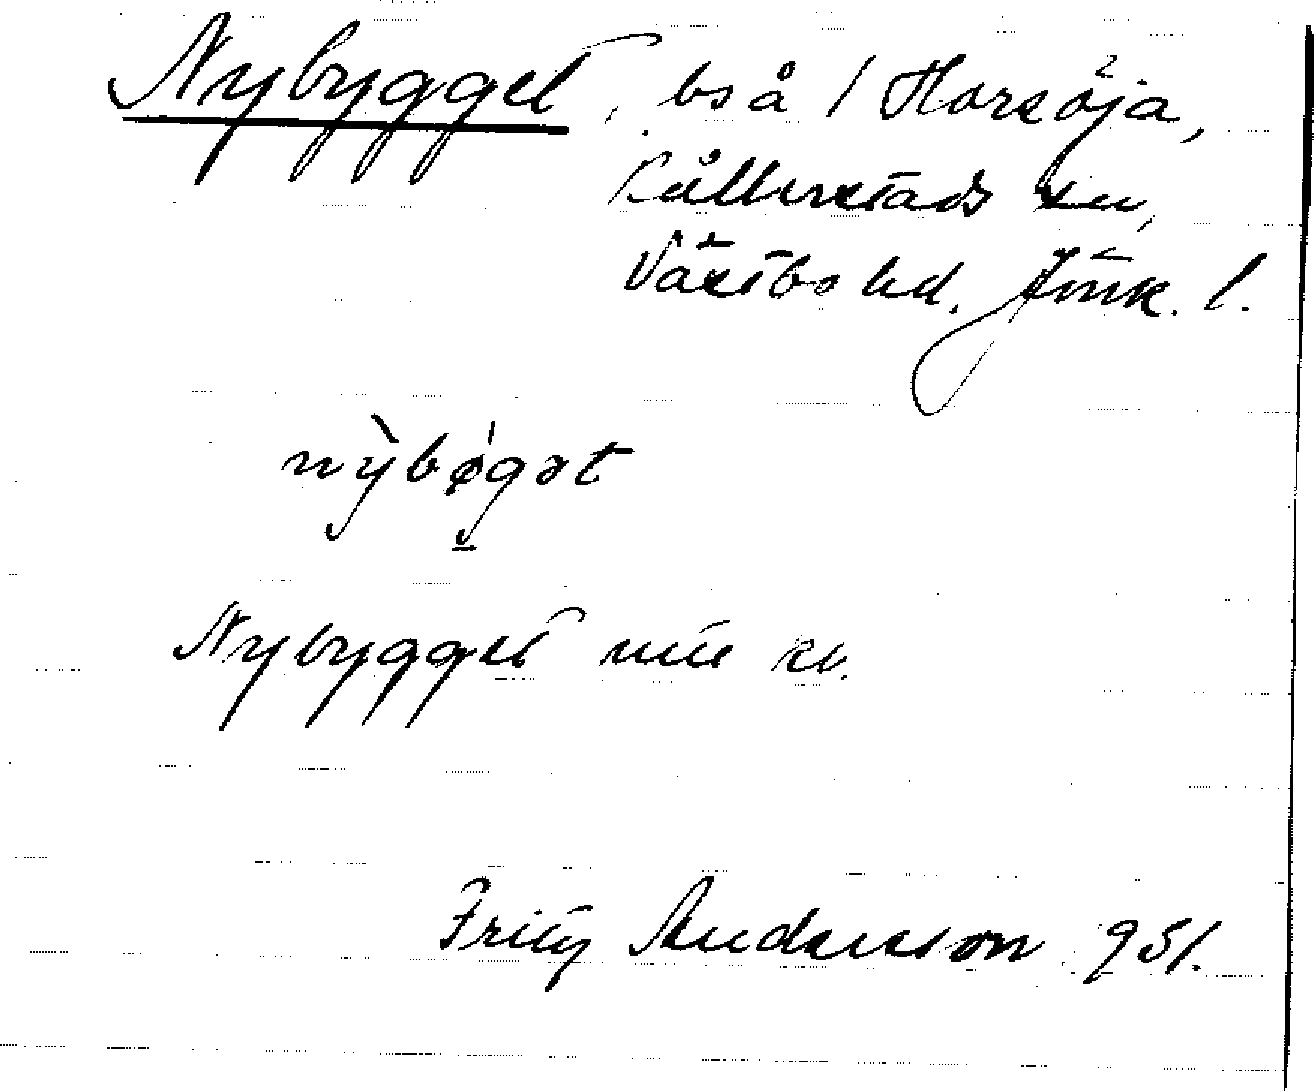 Nybygget, bså / Horsöja,
Källerstads sn,
Västbo hd. Jönk. l.
nỳbø̀gət
Nybygget nuv kv.
Fritz Andersson 951.